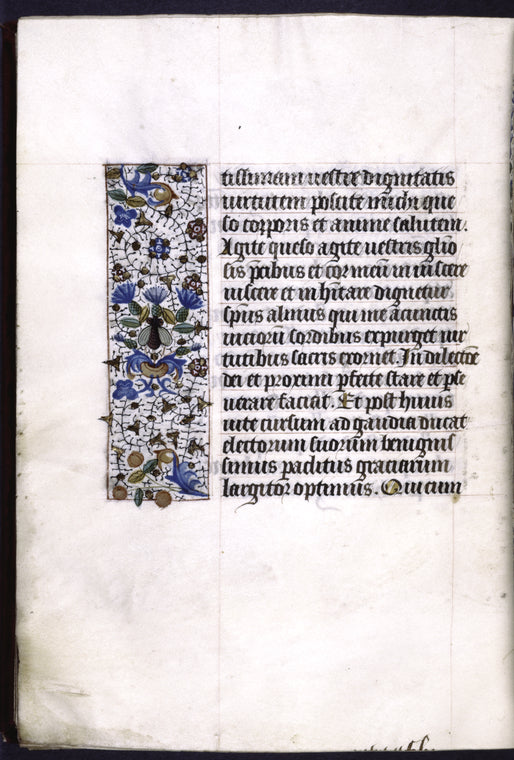 tissimam vestre dignitatis
virtutem poscite michi que
so corporis et anime salutem.
Agite queso agite vestris glio
sis p̄cibus et cor meū in viscere
viscere et in hītare dignetur
sp̄us almus qui me a cunctis
viciorū sordibus expurget vir
tutibus sacris exornet. In dilectōe
dei et proximi pfecte stare et pse
verare faciat. Et post huius
vite cursum ad gaudia ducat
electorum suorum benignis
simus paclitus graciarum
largitor optimus. Qui cum